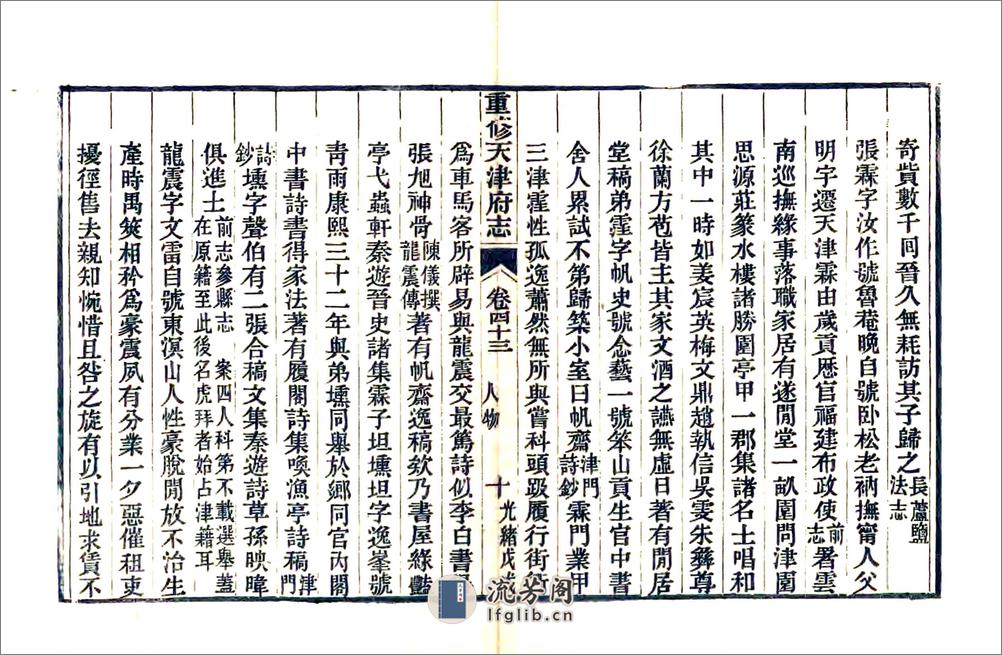 奇貲數千囘晉久無耗訪其子歸之長蘆鹽法志
張霖字汝作號魯菴晚自號卧松老衲撫甯人父
明宇遷天津霖由歲貢歷官福建布政使前志署雲
南巡撫緣事落職家居有遂閒堂一畝園問津園
思源莊篆水樓諸勝園亭甲一郡集諸名士唱和
其中一時如姜宸英梅文鼎趙執信吳雯朱彝尊
徐蘭方苞皆主其家文酒之讌無虛日著有閒居
堂稿弟霔字帆史號念藝一號笨山貢生官中書
舍人累試不第歸築小室曰帆齋津門詩鈔霖門業甲
三津霔性孤逸蕭然無所與嘗科頭跋履行街
重修天津府志
卷四十三
人物
十
光緒戊
爲車馬客所辟易與龍震交最篤詩似李白書
張旭神骨陳儀撰龍震傳著有帆齋逸稿欸乃書屋綠豔
亭弋蟲軒秦遊晉史諸集霖子坦壎坦字逸峯號
靑雨康熙三十二年與弟壎同舉於鄉同官內閣
中書詩書得家法著有履閣詩集喚漁亭詩稿津門
詩鈔壎字聲伯有二張合稿文集秦遊詩草孫映暐
俱進士前志參縣志　案四人科第不載選舉蓋在原籍至此後名虎拜者始占津籍耳
龍震字文雷自號東溟山人性豪脫閒放不治生
產時禺筴相矜爲豪震夙有分業一夕惡催租吏
擾徑售去親知惋惜且咎之旋有以引地求賃不
流芳阁
lfglib.cn